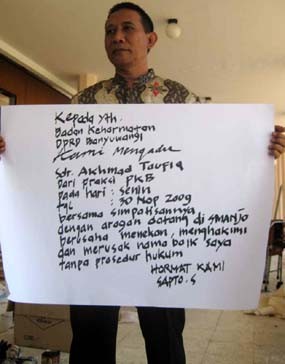 Kepada yth.
Badan Kehormatan
DPRD Banyuwangi
Kami Mengadu
Sdr. Akhmad Taufiq
Dari Fraksi PKB
pada hari : Senin
tgl : 30 Nop 2009
bersama simpatisannya
dengan arogan datang di SMANJO
berusaha menekan, menghakimi
dan merusak nama baik saya
tanpa prosedur hukum
HORMAT KAMI
SAPTO.S